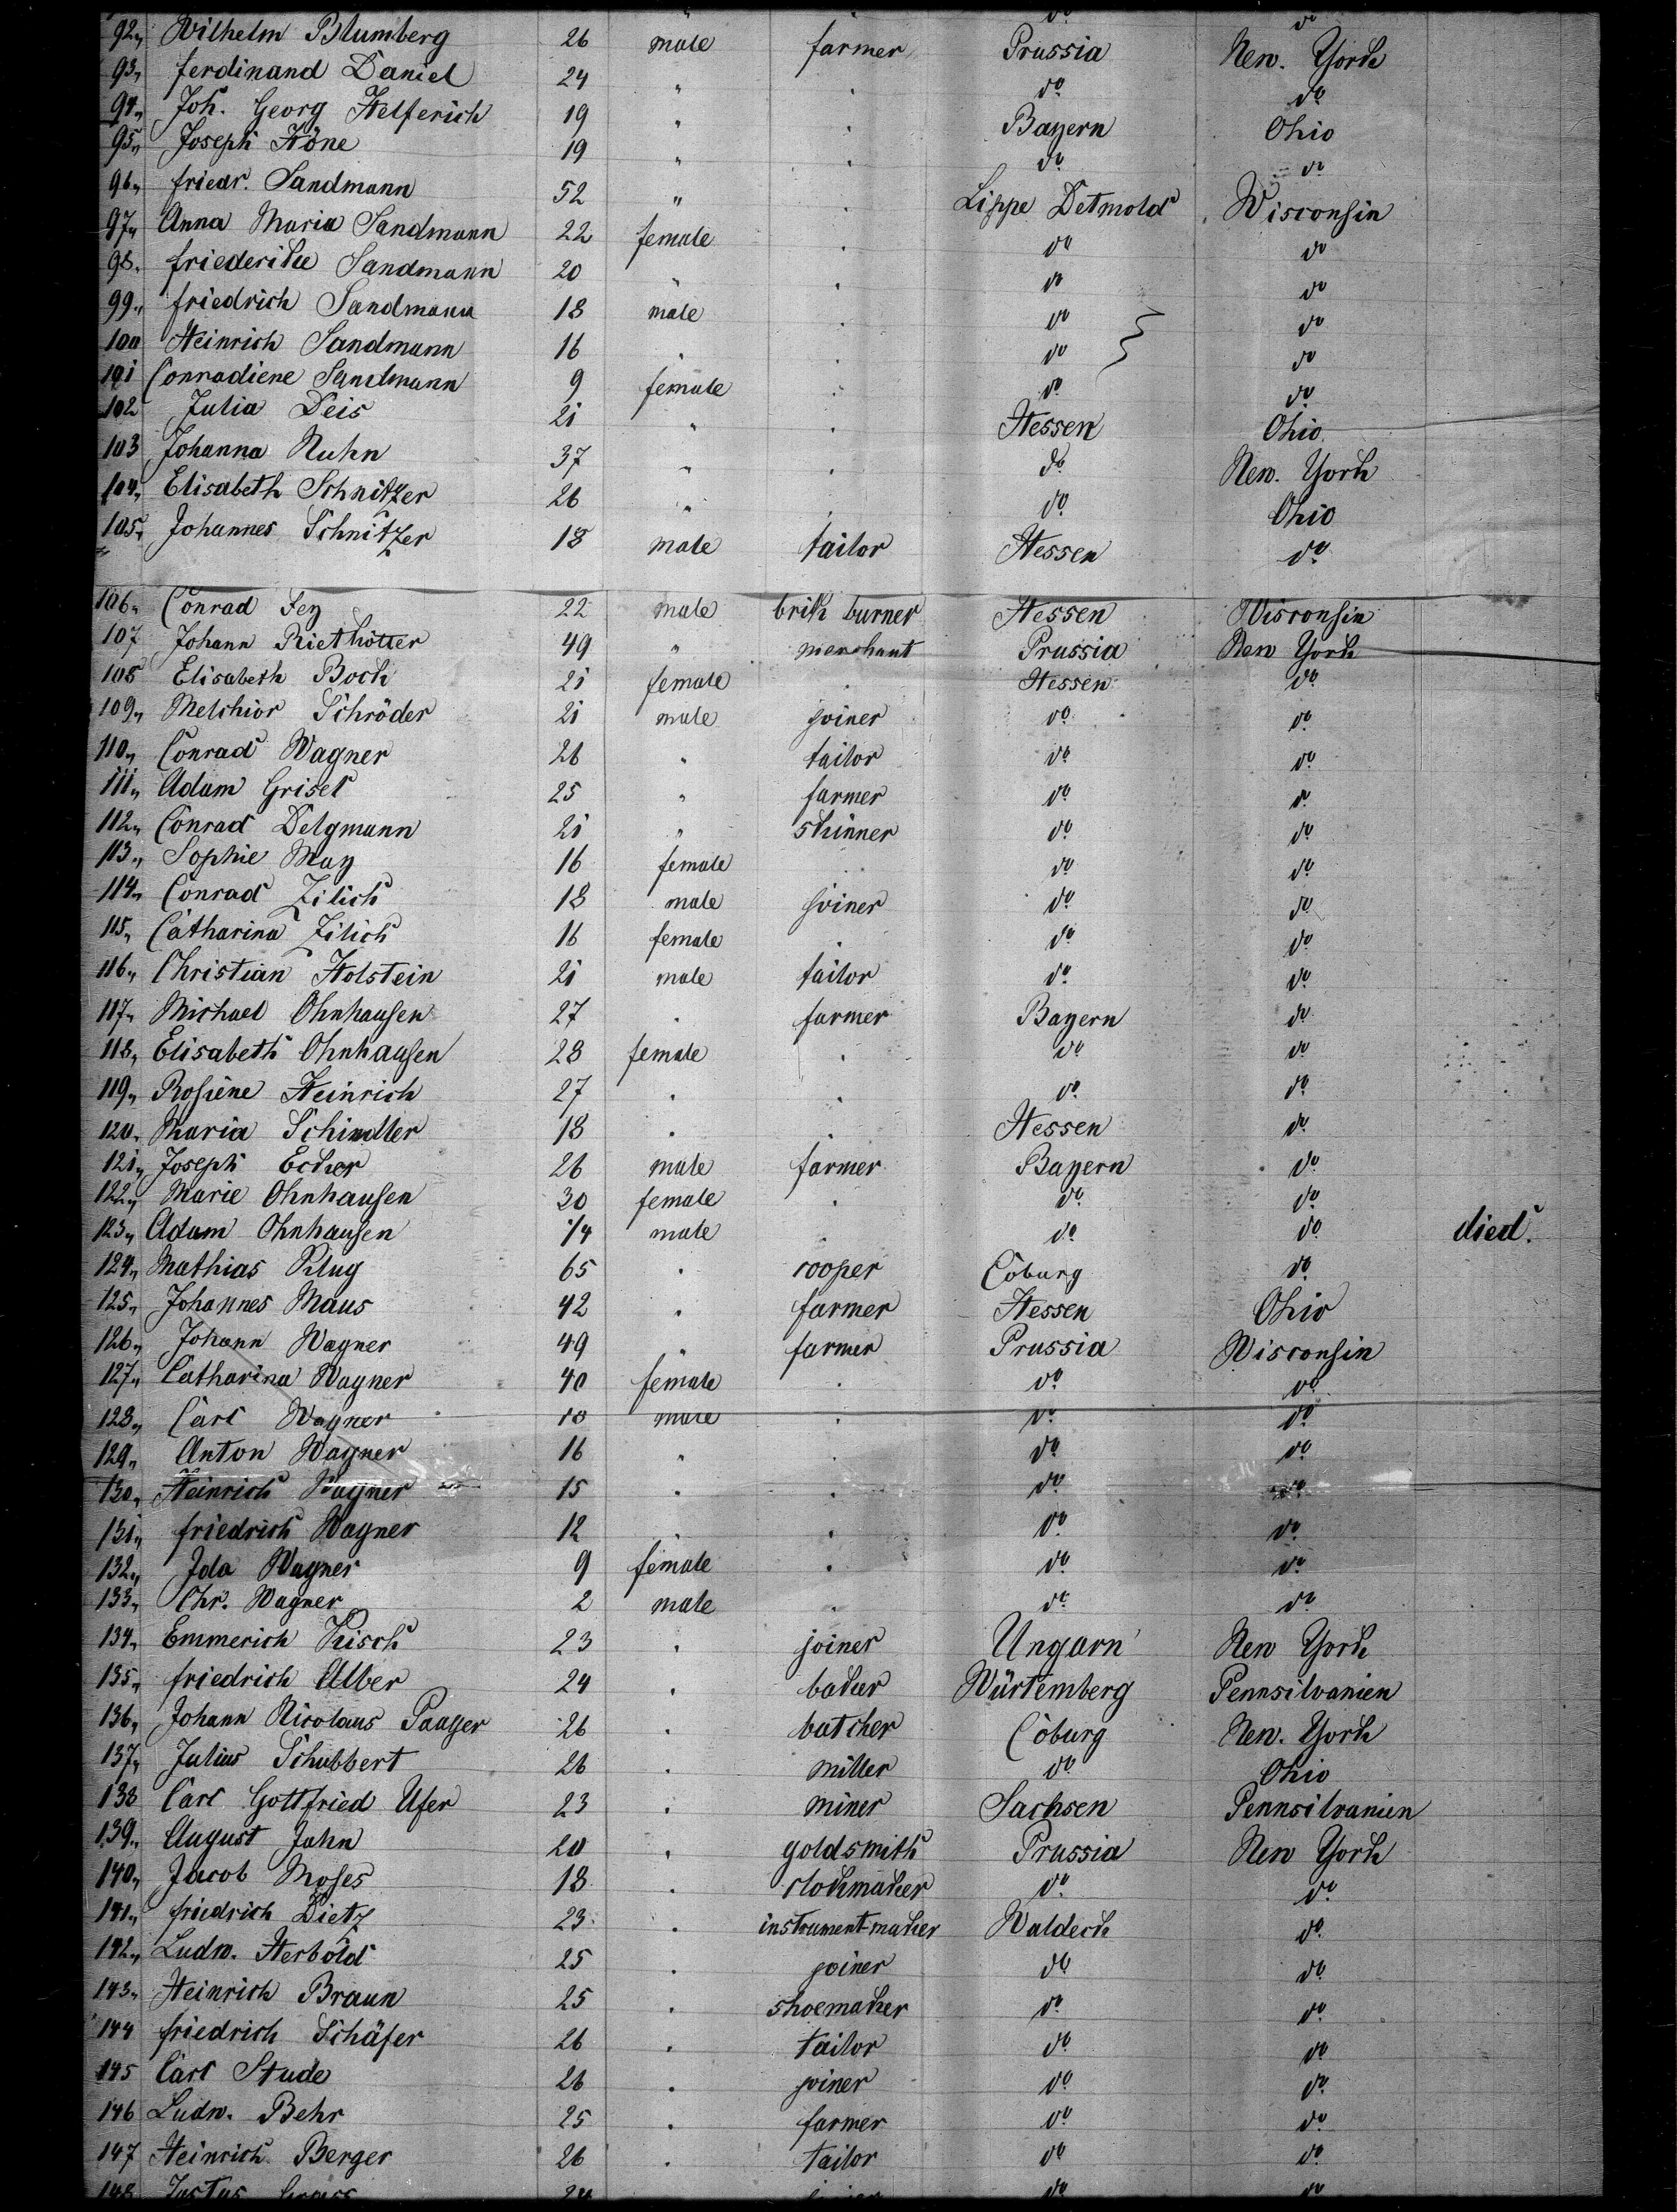 92 Wilhelm Blumberg 26 male farmer Prussia New. York
93 ferdinand Daniel 24 " " do do
94 Joh. Georg Helferich 19 " " Bayern Ohio
95 Joseph Höne 19 " " do do
96 friedr. Sandmann 52 " " Lippe Detmold Wisconsin
97 Anna Maria Sandmann 22 female " do do
98 friederike Sandmann 20 " " do do
99 friedrich Sandmann 18 male " do do
100 Heinrich Sandmann 16 " " do do
101 Conradiene Sandmann 9 female " do do
102 Julia Deis 21 " " Hessen Ohio
103 Johanna Kuhn 37 " " do New. York
104 Elisabeth Schnitzer 26 " " do Ohio
105 Johannes Schnitzer 18 male tailor Hessen do
106 Conrad Fey 22 male brik burner Hessen Wisconsin
107 Johann Riethötter 49 " merchant Prussia New York
108 Elisabeth Bock 21 female " Hessen do
109 Melchior Schröder 21 male joiner do do
110 Conrad Wagner 26 " tailor do do
111 Adam Grisel 25 " farmer do do
112 Conrad Delgmann 21 " skinner do do
113 Sophie May 16 female " do do
114 Conrad Zilich 18 male joiner do do
115 Catharina Zilich 16 female " do do
116 Christian Holstein 21 male tailor do do
117 Michael Ohnhausen 27 " farmer Bayern do
118 Elisabeth Ohnhausen 28 female " do do
119 Rosiene Heinrich 27 " " do do
120 Maria Schindler 18 " " Hessen do
121 Joseph Ecker 26 male farmer Bayern do
122 Marie Ohnhausen 30 female " do do
123 Adam Ohnhausen 1/4 male " do do died.
124 Mathias Klug 65 " cooper Coburg do
125 Johannes Maus 42 " farmer Hessen Ohio
126 Johann Wagner 49 " farmer Prussia Wisconsin
127 Catharina Wagner 40 female " do do
128 Carl Wagner male " do do
129 Anton Wagner 16 " " do do
130 Heinrich Wagner 15 " " do do
131 friedrich Wagner 12 " " do do
132 Ida Wagner 9 female " do do
133 Chr. Wagner 2 male " do do
134 Emmerich Kisch 23 " joiner Ungarn New York
135 friedrich Alber 24 " baker Würtemberg Pennsilvanien
136 Johann Nicolaus 26 " butcher Coburg New. York
137 Julius Schubbert 26 " miller do Ohio
138 Carl Gottfried Ufer 23 " miner Sachsen Pennsilvanien
139 August Jahn 20 " goldsmith Prussia New York
140 Jacob Moses 18 " clockmaker do do
141 friedrich Dietz 23 " instrument-maker Waldeck do
142 Ludw. Herbold 25 " joiner do do
143 Heinrich Braun 25 " shoemaker do do
144 friedrich Schäfer 26 " tailor do do
145 Carl Stude 26 " joiner do do
146 Ludw. Behr 25 " farmer do do
147 Heinrich Berger 26 " tailor do do
148 Justus do do